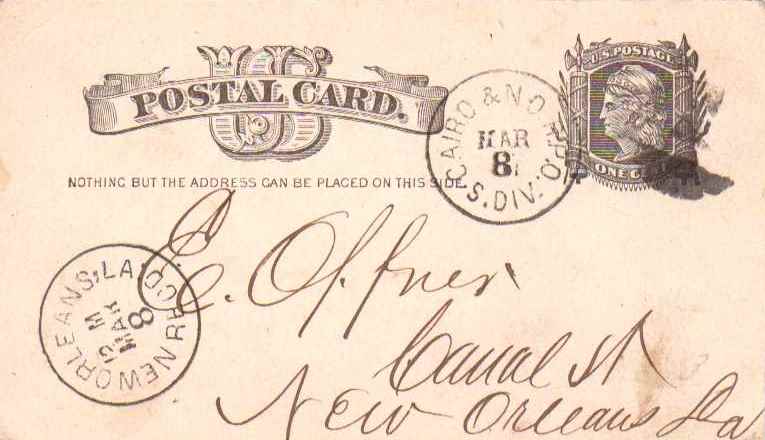 US
POSTAL CARD.
U.S. POSTAGE
ONE CENT
NOTHING BUT THE ADDRESS CAN BE PLACED ON THIS SIDE.
CAIRO & N.O. R.P.O.
MAR
8
S. DIV.
NEW ORLEANS, LA. REC'D
12 M
MAR
8
E. Offner
Canal St
New Orleans La